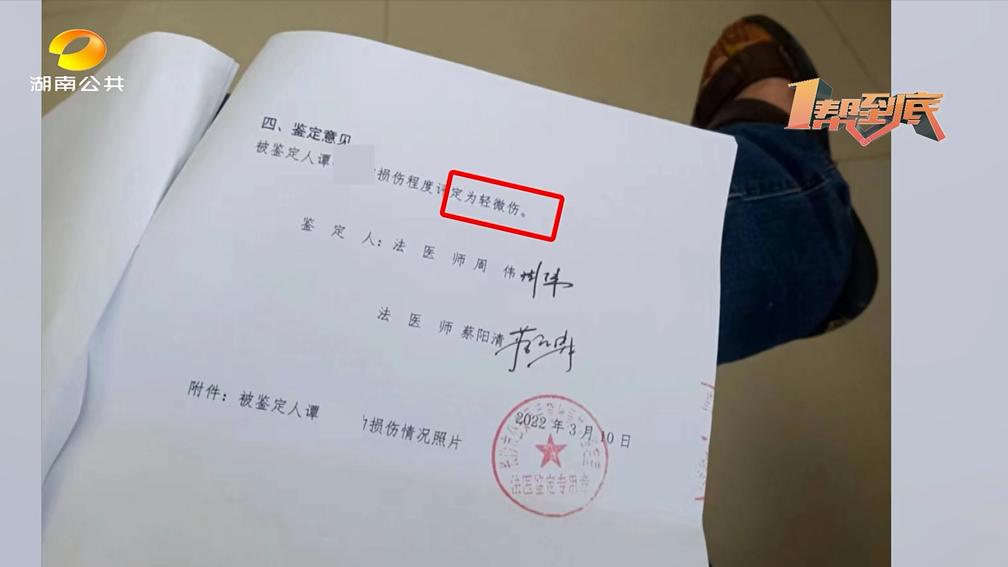 湖南公共
帮到底
四、鉴定意见
被鉴定人谭 损伤程度评定为轻微伤。
鉴 定 人：法 医 师 周 伟
法 医 师 蔡阳清
附件：被鉴定人谭 损伤情况照片
2022年3月10日
法医鉴定专用章